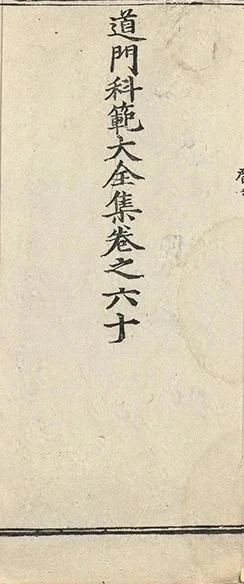 道門科範大全集卷之六十